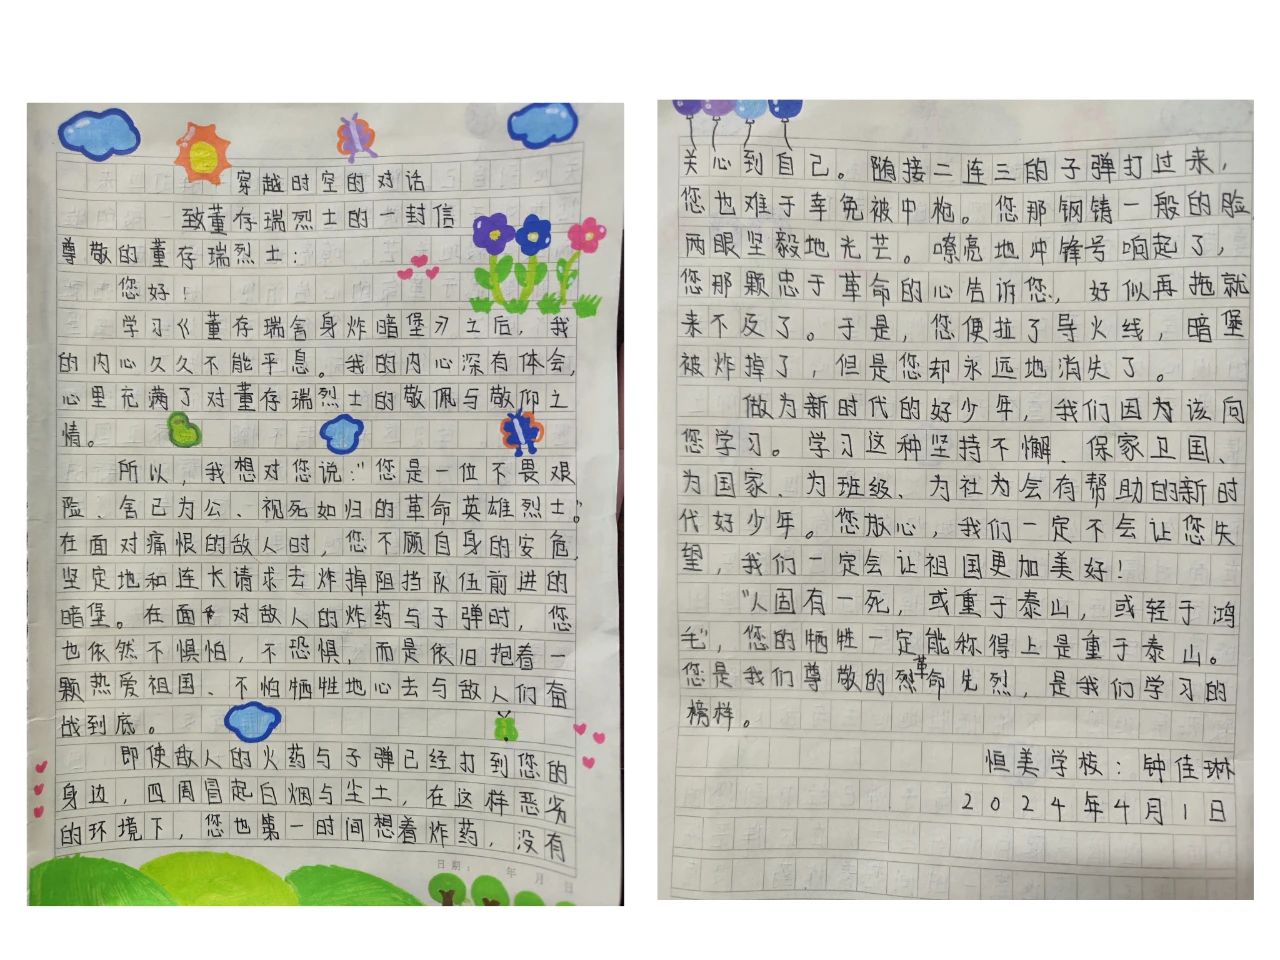 穿越时空的对话
致董存瑞烈士的一封信
尊敬的董存瑞烈士：
您好！
学习《董存瑞舍身炸暗堡》之后，我
的内心久久不能平息。我的内心深有体会，
心里充满了对董存瑞烈士的敬佩与敬仰之
情。
所以，我想对您说："您是一位不畏艰
险、舍己为公、视死如归的革命英雄烈士。"
在面对痛恨的敌人时，您不顾自身的安危，
坚定地和连长请求去炸掉阻挡队伍前进的
暗堡。在面对敌人的炸药与子弹时，您
也依然不惧怕，不恐惧，而是依旧抱着一
颗热爱祖国、不怕牺牲地心去与敌人们奋
战到底。
即使敌人的火药与子弹已经打到您的
身边，四周冒起白烟与尘土，在这样恶劣
的环境下，您也第一时间想着炸药，没有
日期： 年 月 日
关心到自己。随接二连三的子弹打过来，
您也难于幸免被中枪。您那钢铸一般的脸
两眼坚毅地光芒。嘹亮地冲锋号响起了，
您那颗忠于革命的心告诉您，好似再拖就
来不及了。于是，您便拉了导火线，暗堡
被炸掉了，但是您却永远地消失了。
做为新时代的好少年，我们因为该向
您学习。学习这种坚持不懈、保家卫国、
为国家、为班级、为社为会有帮助的新时
代好少年。您放心，我们一定不会让您失
望，我们一定会让祖国更加美好！
"人固有一死，或重于泰山，或轻于鸿
毛"，您的牺牲一定能称得上是重于泰山。
您是我们尊敬的烈革命先烈，是我们学习的
榜样。
恒美学校：钟佳琳
2024年4月1日